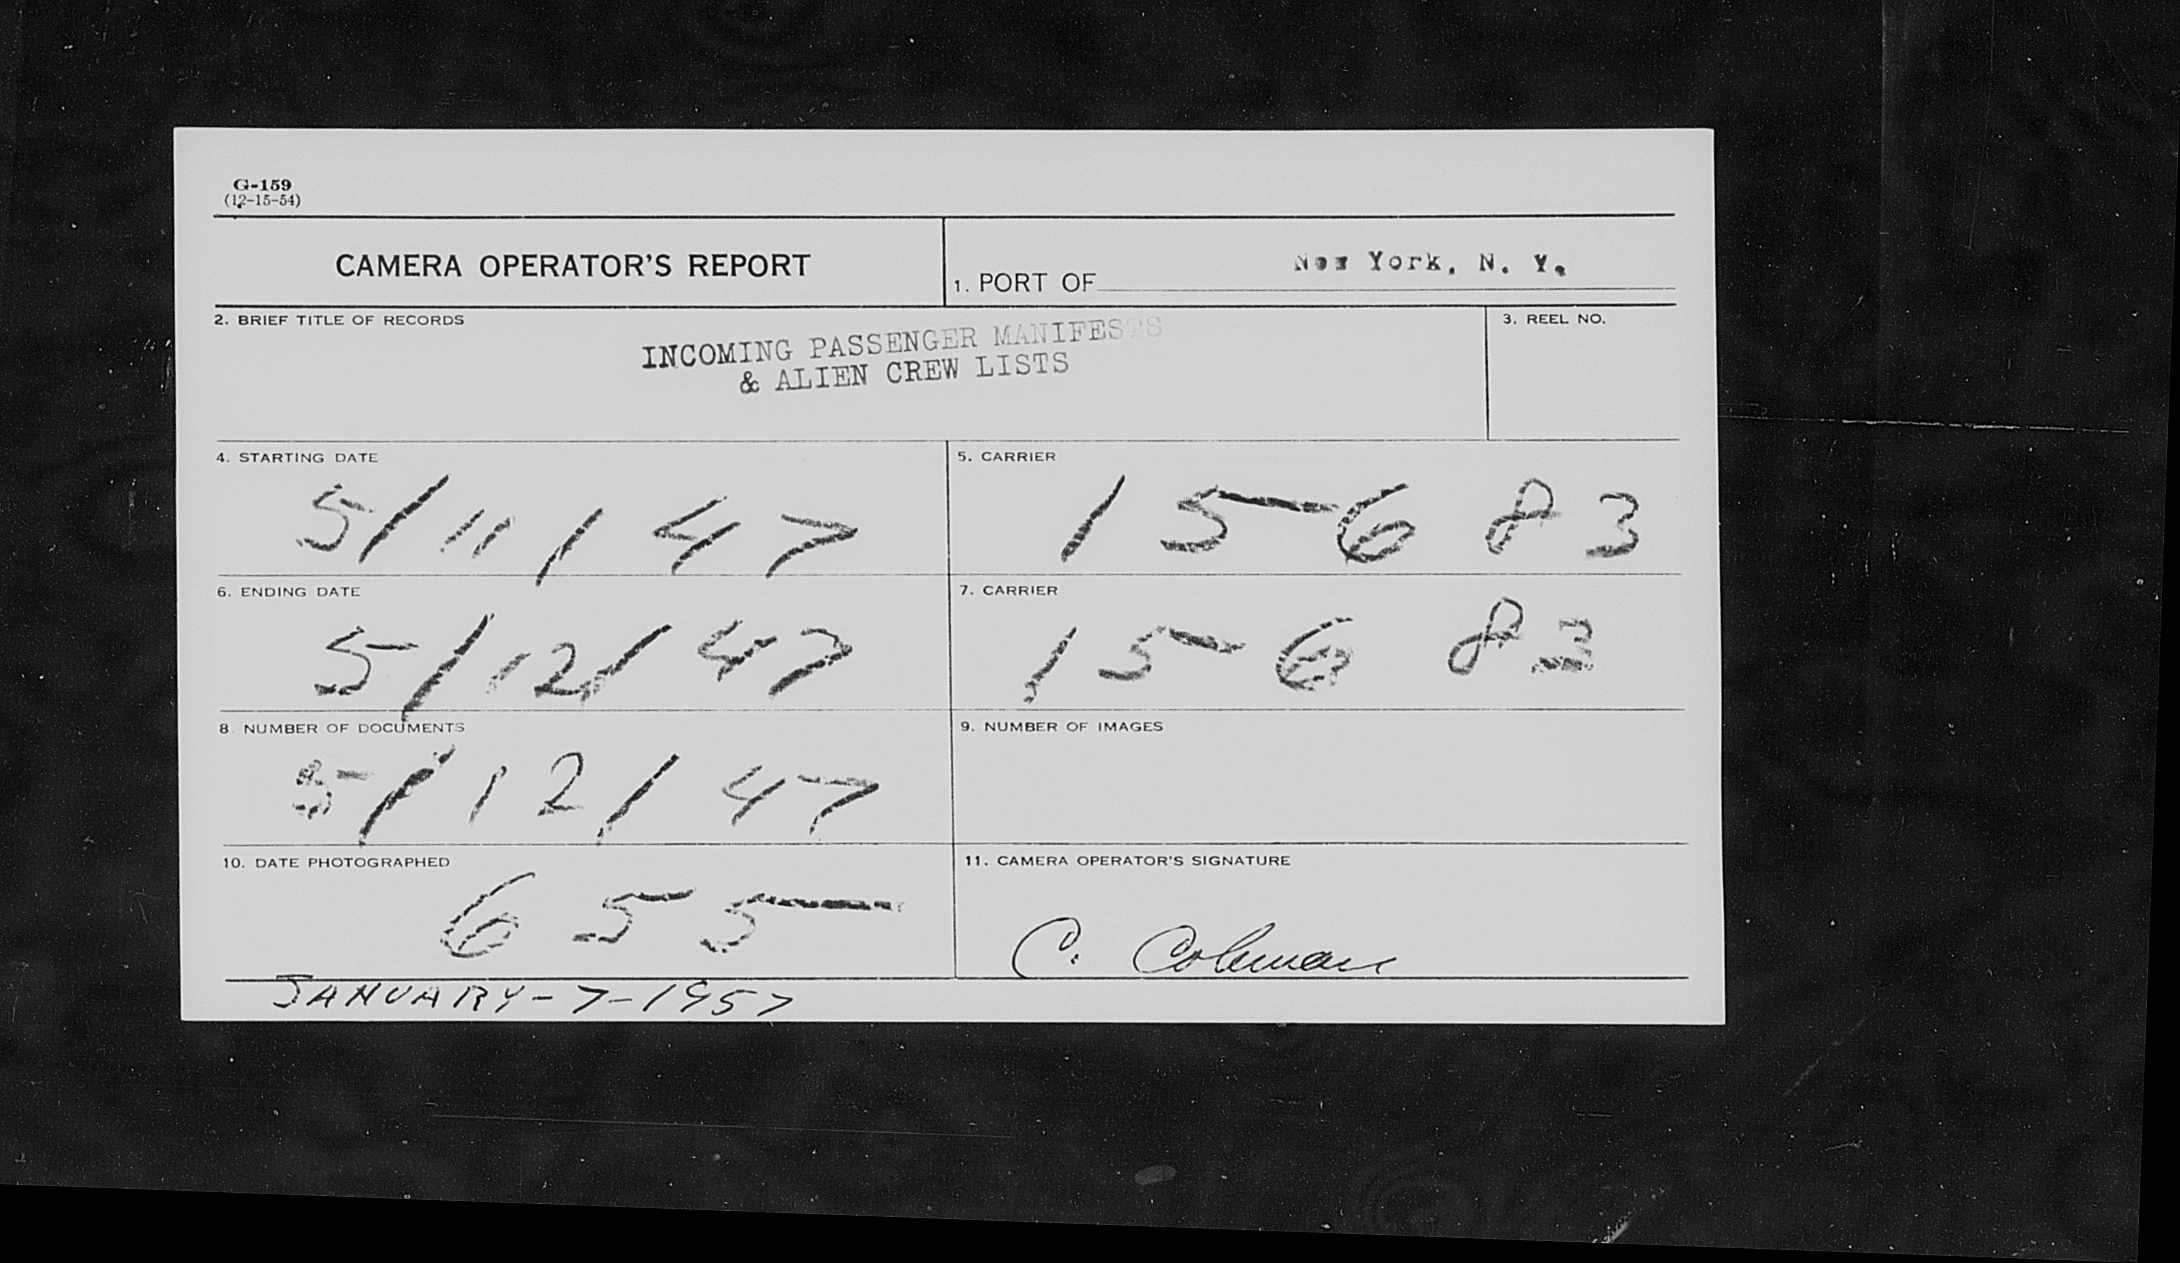 G-159
(12-15-54)
CAMERA OPERATOR'S REPORT
1. PORT OF New York, N. Y.
2. BRIEF TITLE OF RECORDS
INCOMING PASSENGER MANIFESTS
& ALIEN CREW LISTS
3. REEL NO.
4. STARTING DATE
5/11/47
5. CARRIER
15683
6. ENDING DATE
5/12/47
7. CARRIER
15683
8. NUMBER OF DOCUMENTS
5/12/47
9. NUMBER OF IMAGES
10. DATE PHOTOGRAPHED
655
JANUARY-7-1957
11. CAMERA OPERATOR'S SIGNATURE
C. Coleman